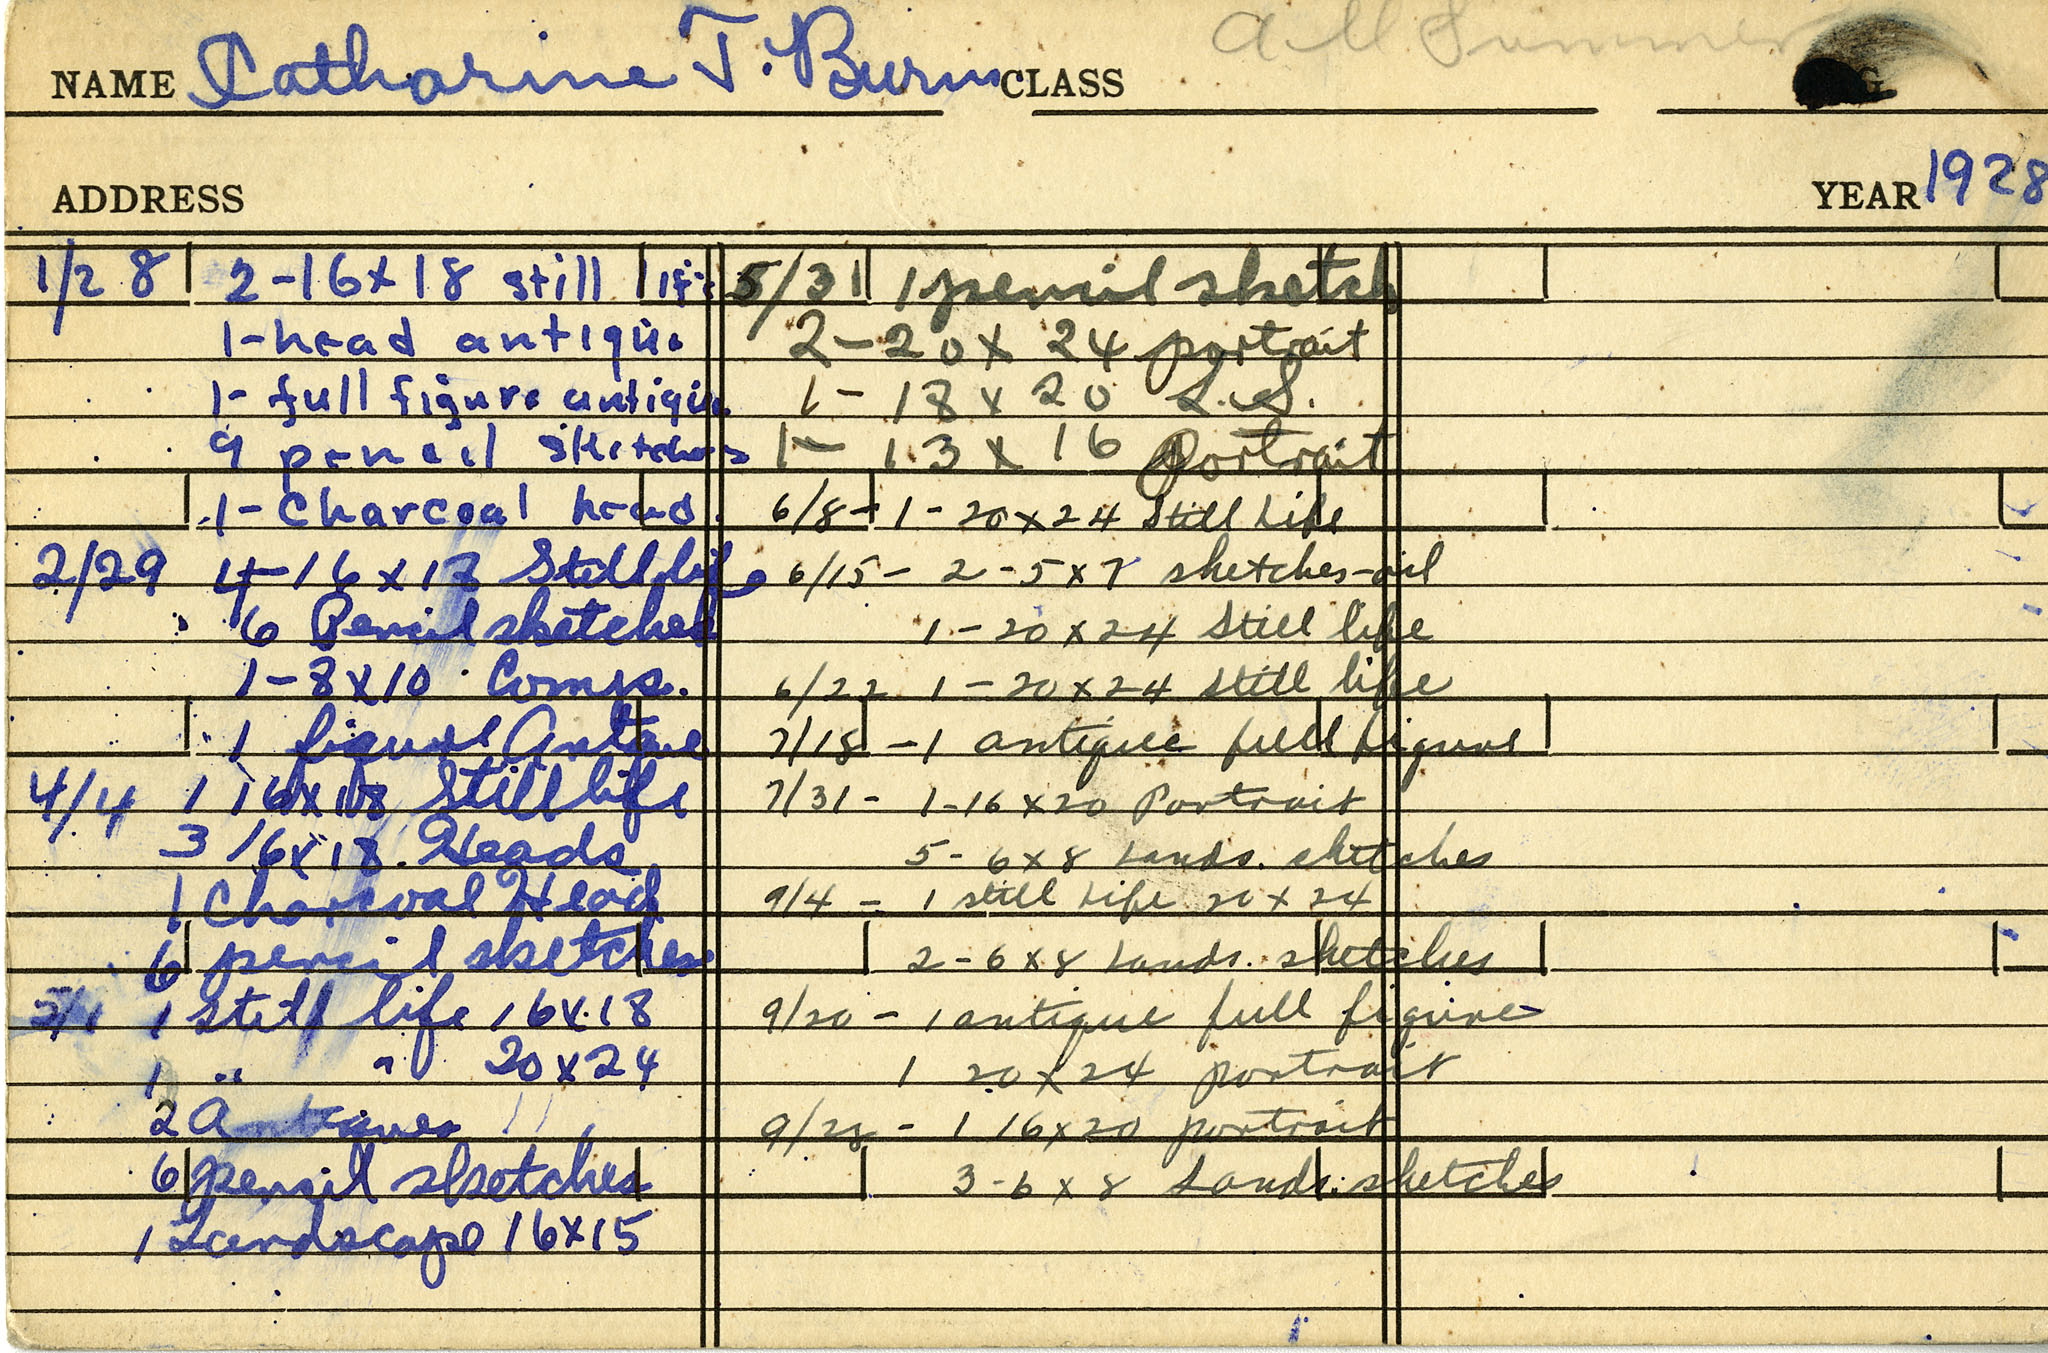 All Summer
NAME Catharine T. Burns CLASS
ADDRESS YEAR 1928
1/28 2-16x18 still life
1-head antique
1-full figure antique
9 pencil sketches
1-Charcoal head
2/29 4-16x18 Still life
6 Pencil sketches
1-8x10 Comps.
1 figure Antique
4/4 1 16x18 Still life
3 16x18 Heads
1 Charcoal Head
6 pencil sketches
5/1 1 Still life 16x18
1 " " 20x24
2 Antiques
6 pencil sketches
1 Landscape 16x15
5/31 1 pencil sketch
2-20x24 portrait
1-18x20 L.S.
1-13x16 Portrait
6/8-1-20x24 Still Life
6/15-2-5x7 sketches-oil
1-20x24 Still life
6/22 1-20x24 still life
7/18-1 antique full figure
7/31-1-16x20 Portrait
5-6x8 Lands. sketches
9/4-1 still Life 20x24
2-6x8 Lands. sketches
9/20-1 antique full figure
1 20x24 portrait
9/28-1 16x20 portrait
3-6x8 Lands. sketches